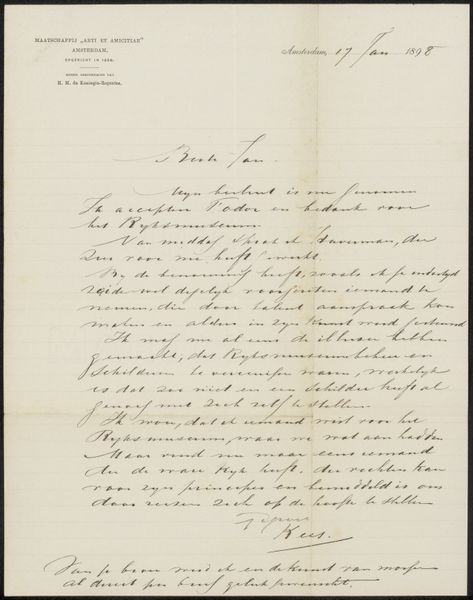 MAATSCHAPPIJ „ARTI ET AMICITIAE"
AMSTERDAM,
OPGERICHT IN 1839.
ONDER BESCHERMING VAN
H. M. de Koningin-Regentes.
Amsterdam, 17 Jan 1898
Beste Jan.
Mijn besluit is nu genomen
Ik accepteer Todor en bedank voor
het Rijksmuseum
Van middag sprak ik Haverman, die
zeer voor me heeft gewerkt.
Bij de benoeming heeft, zooals ik je
zeide wel degelijk iemand te
nemen, die door talent aanspraak kon
maken en aldus in zijn kunst werd gesteund
Ik mag me al eens de illusie hebben
gemaakt, dat Rijksmuseumbeheer en
schilderen te vereenigen waren, werkelijk
is dat zoo niet en een schilder heeft al
genoeg met zich zelf te stellen
Ik wou, dat ik iemand wist voor het
Rijksmuseum, waar we wat aan hadden
Maar vind nu maar eens iemand
die de ware kijk heeft, die vechten kan
voor zijn principes en bemiddeld is om
door reizen zich op de hoogte te stellen
Kees.
Van je broer werd ik en de kunst van morgen
al direct per brief geluk gewenscht.